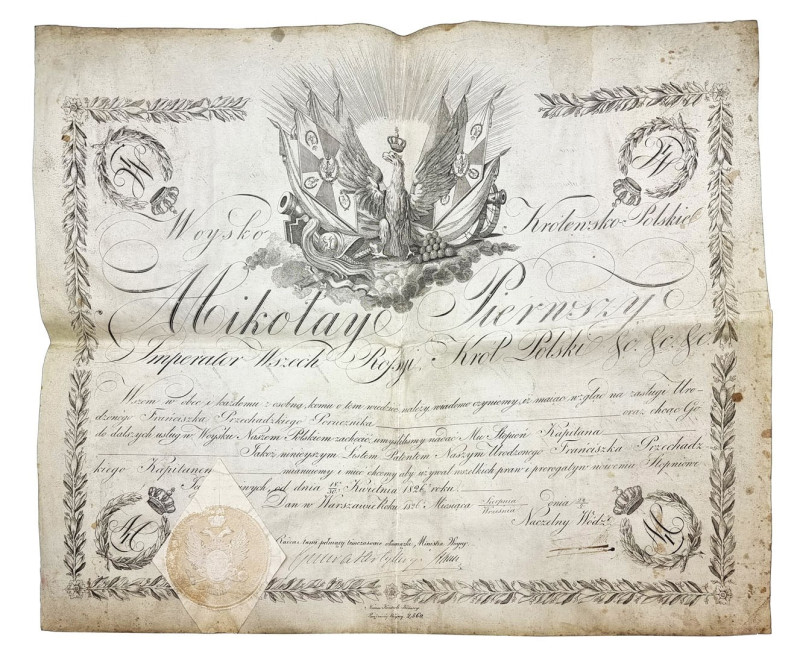 Woysko Królewsko-Polskie
Mikołay Pierwszy
Imperator Wszech Rossyi, Król Polski &c. &c. &c.
Wszem w obec i każdemu z osobna, komu o tem wiedzieć należy, wiadomo czyniemy, iż maiąc wzgląd na zasługi Uro-
dzonego Franciszka Przechadzkiego Porucznika oraz chcąc Go
do dalszych usług w Woysku Naszem Polskiem zachęcić, umyśliliśmy nadać Mu Stopień Kapitana
Jakoż ninieyszym Listem Patentem Naszym Urodzonego Franciszka Przechadz
kiego Kapitanem mianuiemy i mieć chcemy aby używał wszelkich praw i prerogatyw rówieniu Stopniowi
od dnia 18/30 Kwietnia 1826 roku.
Dan w Warszawie Roku 1826 Miesiąca Sierpnia/Września Dnia
Naczelny Wódz
pełniący tymczasowie obowiązki Ministra Woyny